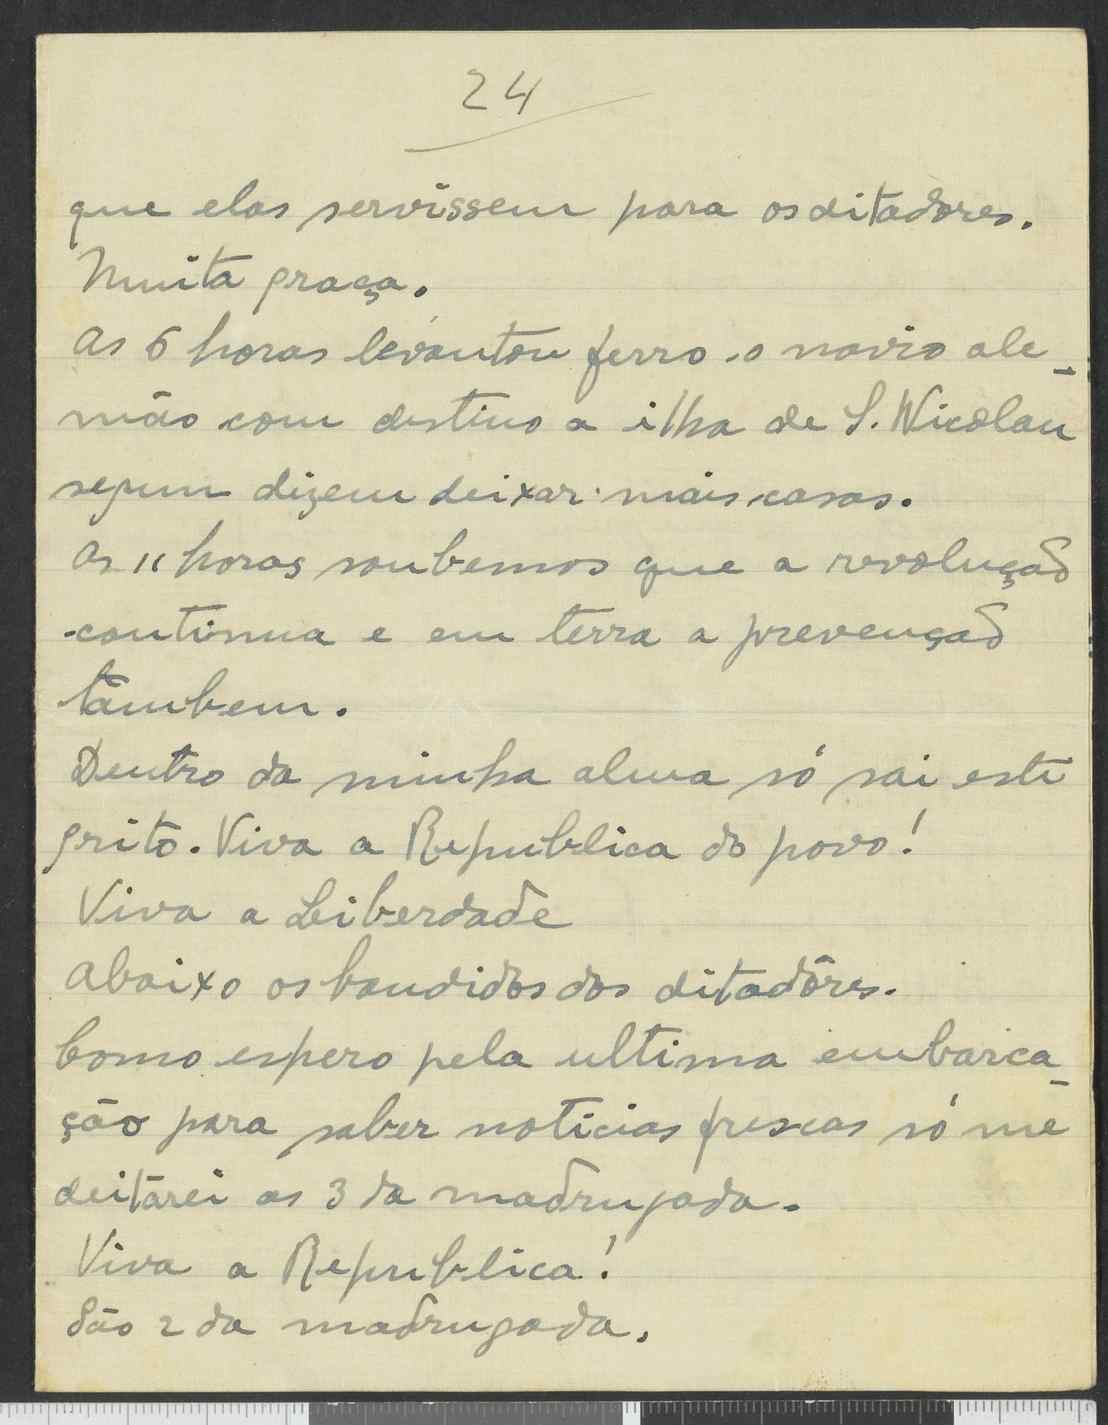 24
que elas servissem para os ditadores.
Muita graça.
As 6 horas levantou ferro o navio ale-
mão com destino a ilha de S. Nicolau
segun dizem deixar mais casas.
As 11 horas soubemos que a revolução
continua e em terra a prevenção
tambem.
Dentro da minha alma só sai este
grito. Viva a Republica do povo!
Viva a Leiberdade
Abaixo os bandidos dos ditadôres.
Como espero pela ultima embarca-
ção para saber noticias frescas só me
deitarei as 3 da madrugada.
Viva a Republica!
São 2 da madrugada.